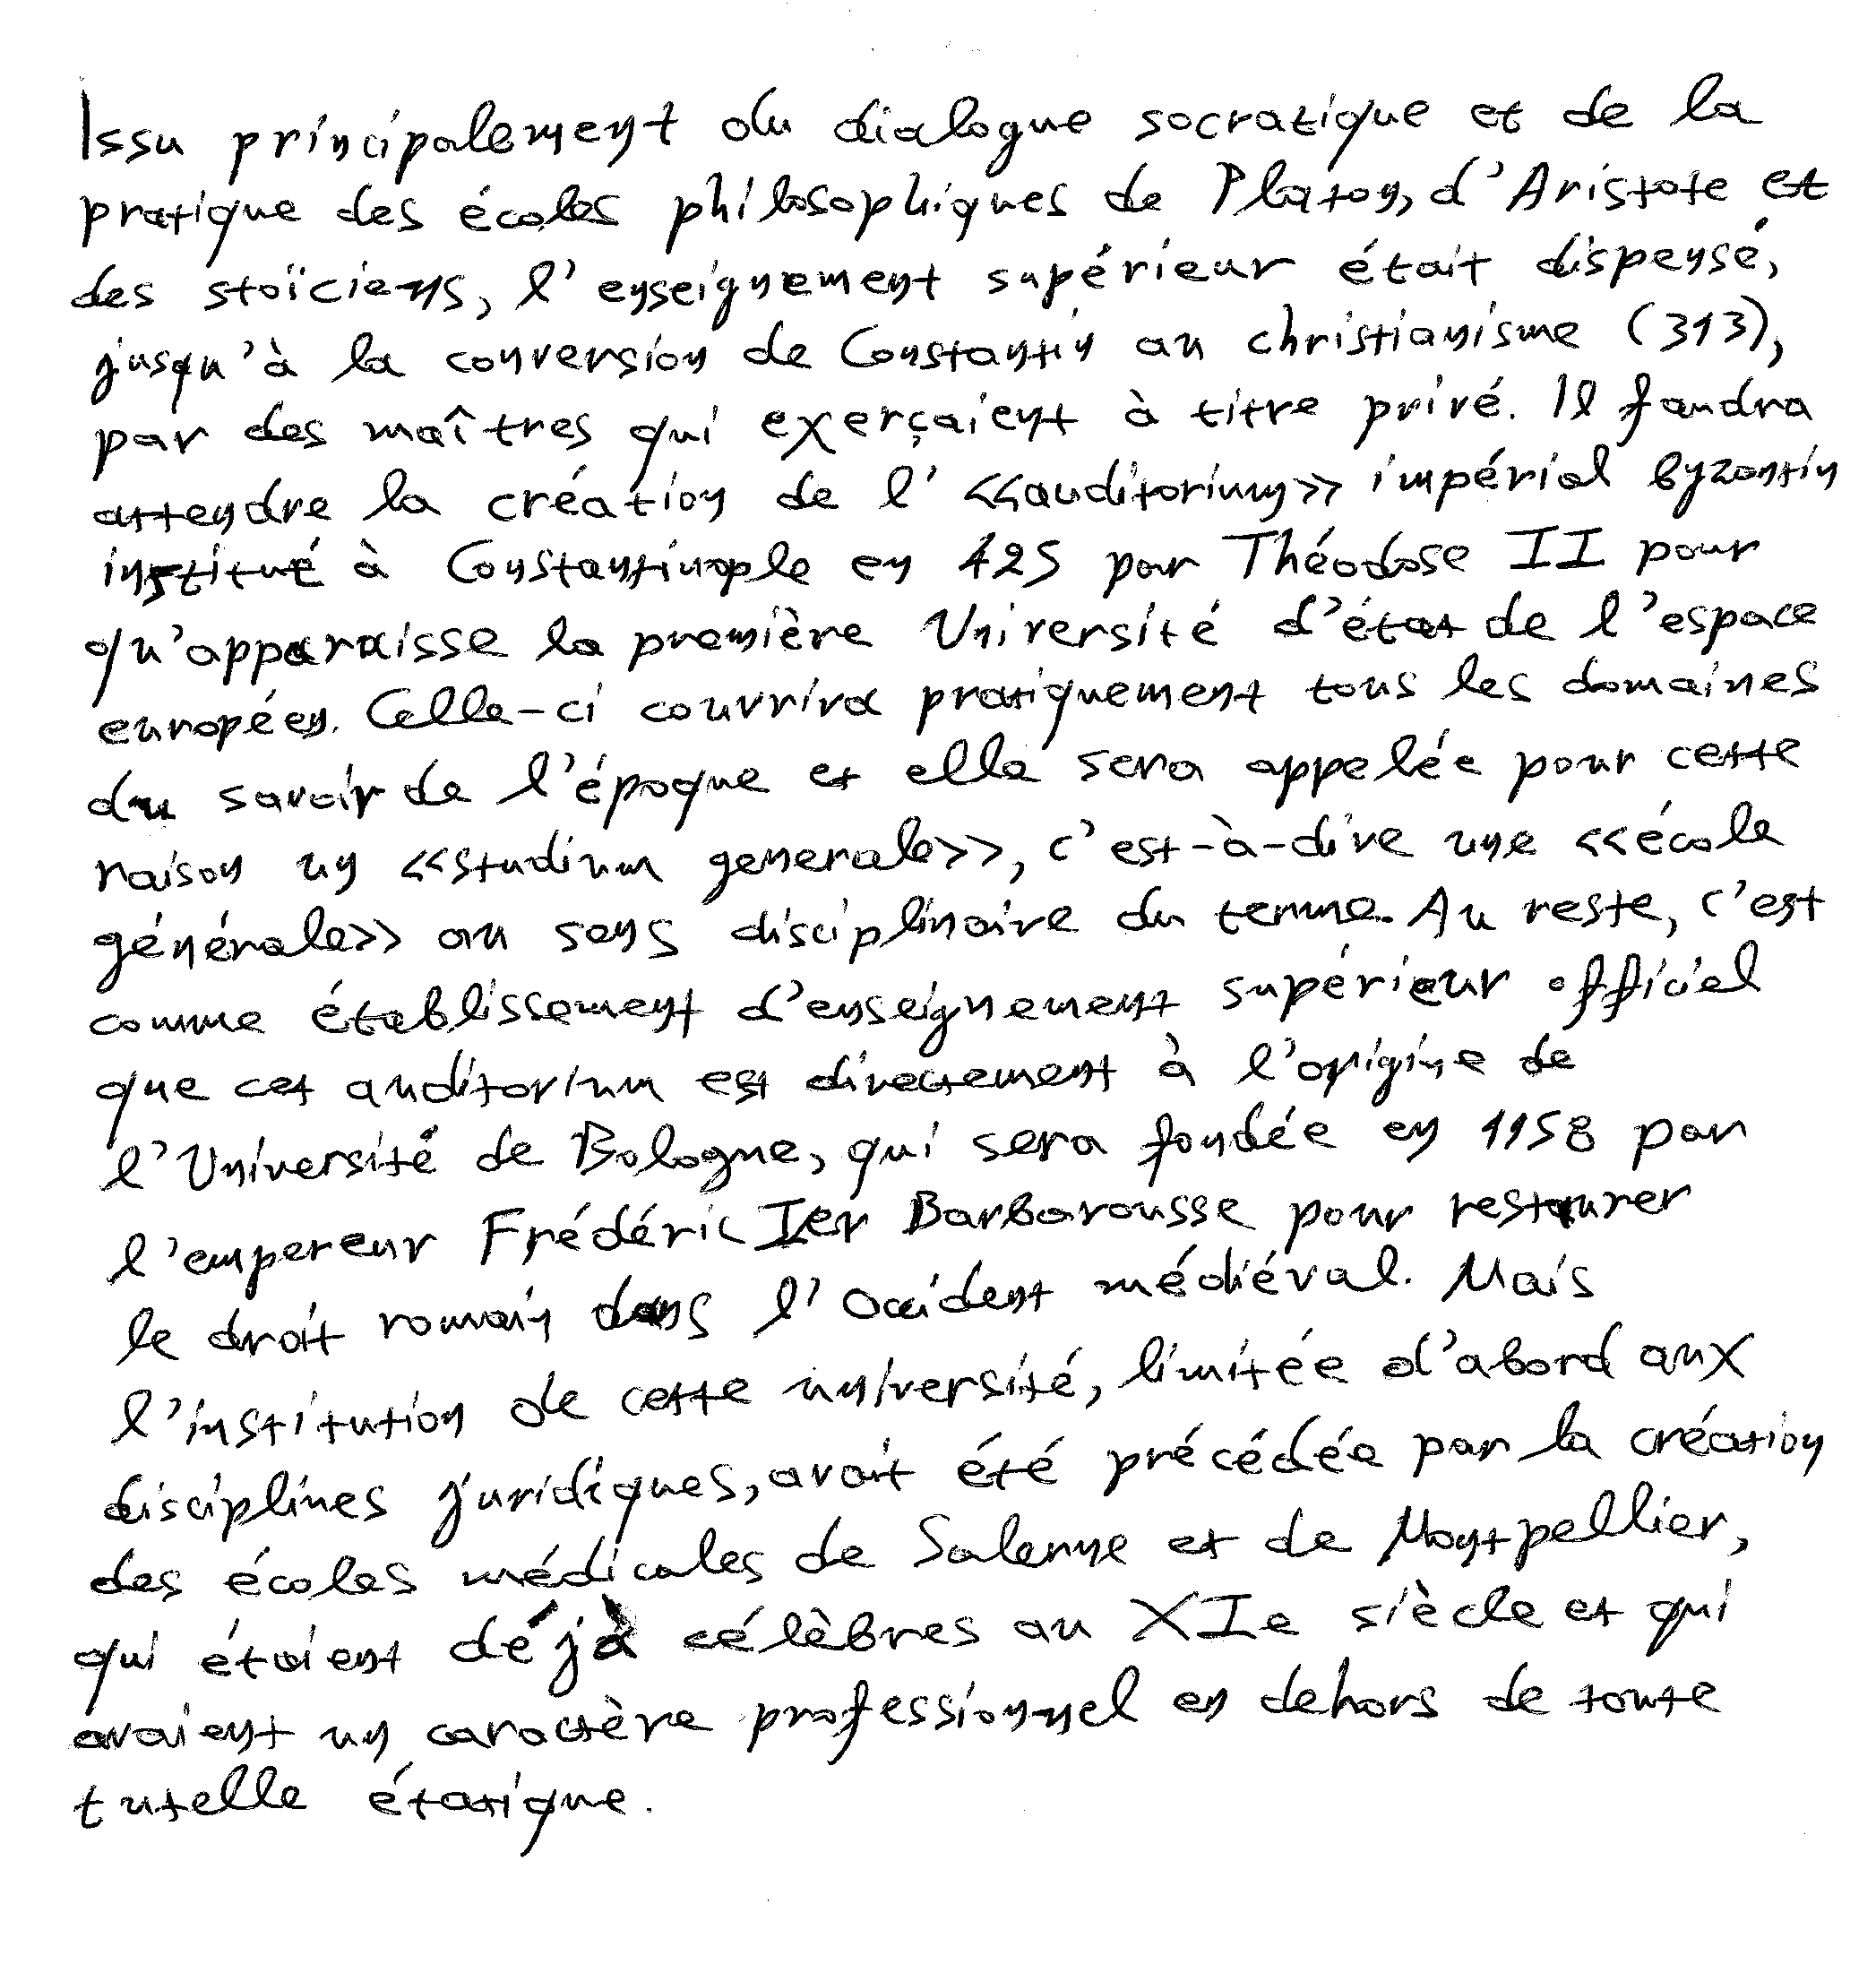 Issu principalement du dialogue socratique et de la
pratique des écoles philosophiques de Platon, d'Aristote et
des stoïciens, l'enseignement supérieur était dispensé,
jusqu'à la conversion de Constantin au christianisme (313),
par des maîtres qui exerçaient à titre privé. Il faudra
attendre la création de l' <<auditorium>> impérial byzantin
institué à Constantinople en 425 par Théodose II pour
qu'apparaisse la première Université d'état de l'espace
européen. Celle-ci couvrira pratiquement tous les domaines
du savoir de l'époque et elle sera appelée pour cette
raison un <<studium generale>>, c'est-à-dire une <<école
générale>> au sens disciplinaire du terme. Au reste, c'est
comme établissement d'enseignement supérieur officiel
que cet auditorium est directement à l'origine de
l'Université de Bologne, qui sera fondée en 1158 par
l'empereur Frédéric Ier Barbarousse pour restaurer
le droit romain dans l'Occident médiéval. Mais
l'institution de cette université, limitée d'abord aux
disciplines juridiques, avait été précédée par la création
des écoles médicales de Salerne et de Montpellier,
qui étaient déjà célèbres au XIe siècle et qui
avaient un caractère professionnel en dehors de toute
tutelle étatique.